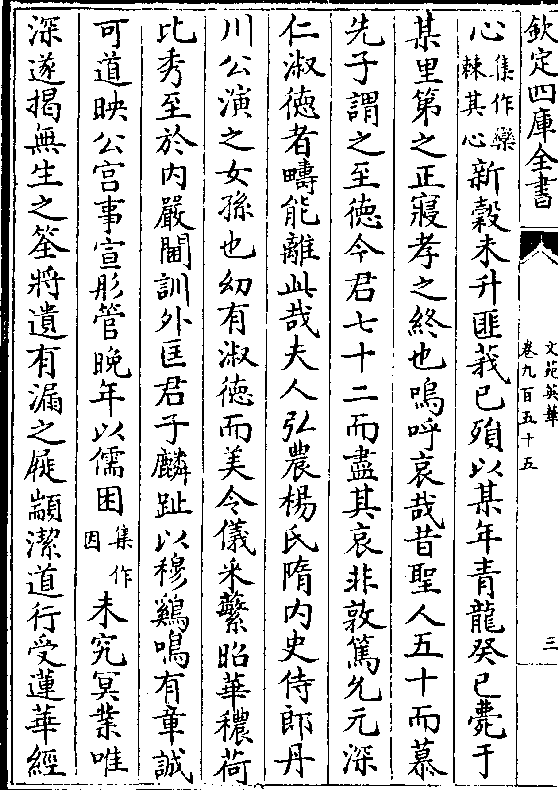 欽定四庫全書
文苑英華
卷九百五十五
三
心集作欒棘其心新穀未升匪莪已殞以某年青龍癸已薨于
某里第之正寢孝之終也嗚呼哀哉昔聖人五十而慕
先子謂之至徳今君七十二而盡其哀非敦篤允元深
仁淑徳者疇能離此哉夫人弘農楊氏隋内史侍郎丹
川公演之女孫也幼有淑徳而美令儀采蘩昭華穠荷
比秀至於内嚴閫訓外匡君子麟趾以穆鷄鳴有章誠
可道映公宫事宣彤管晚年以儒困集作因未究冥業唯
深遂揭無生之筌將遺有漏之屣顓潔道行受蓮華經